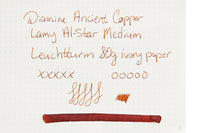 Diamine Ancient Copper
Lamy Al-Star Medium
Leuchtturm 80g ivory paper
xxxxx ooooo